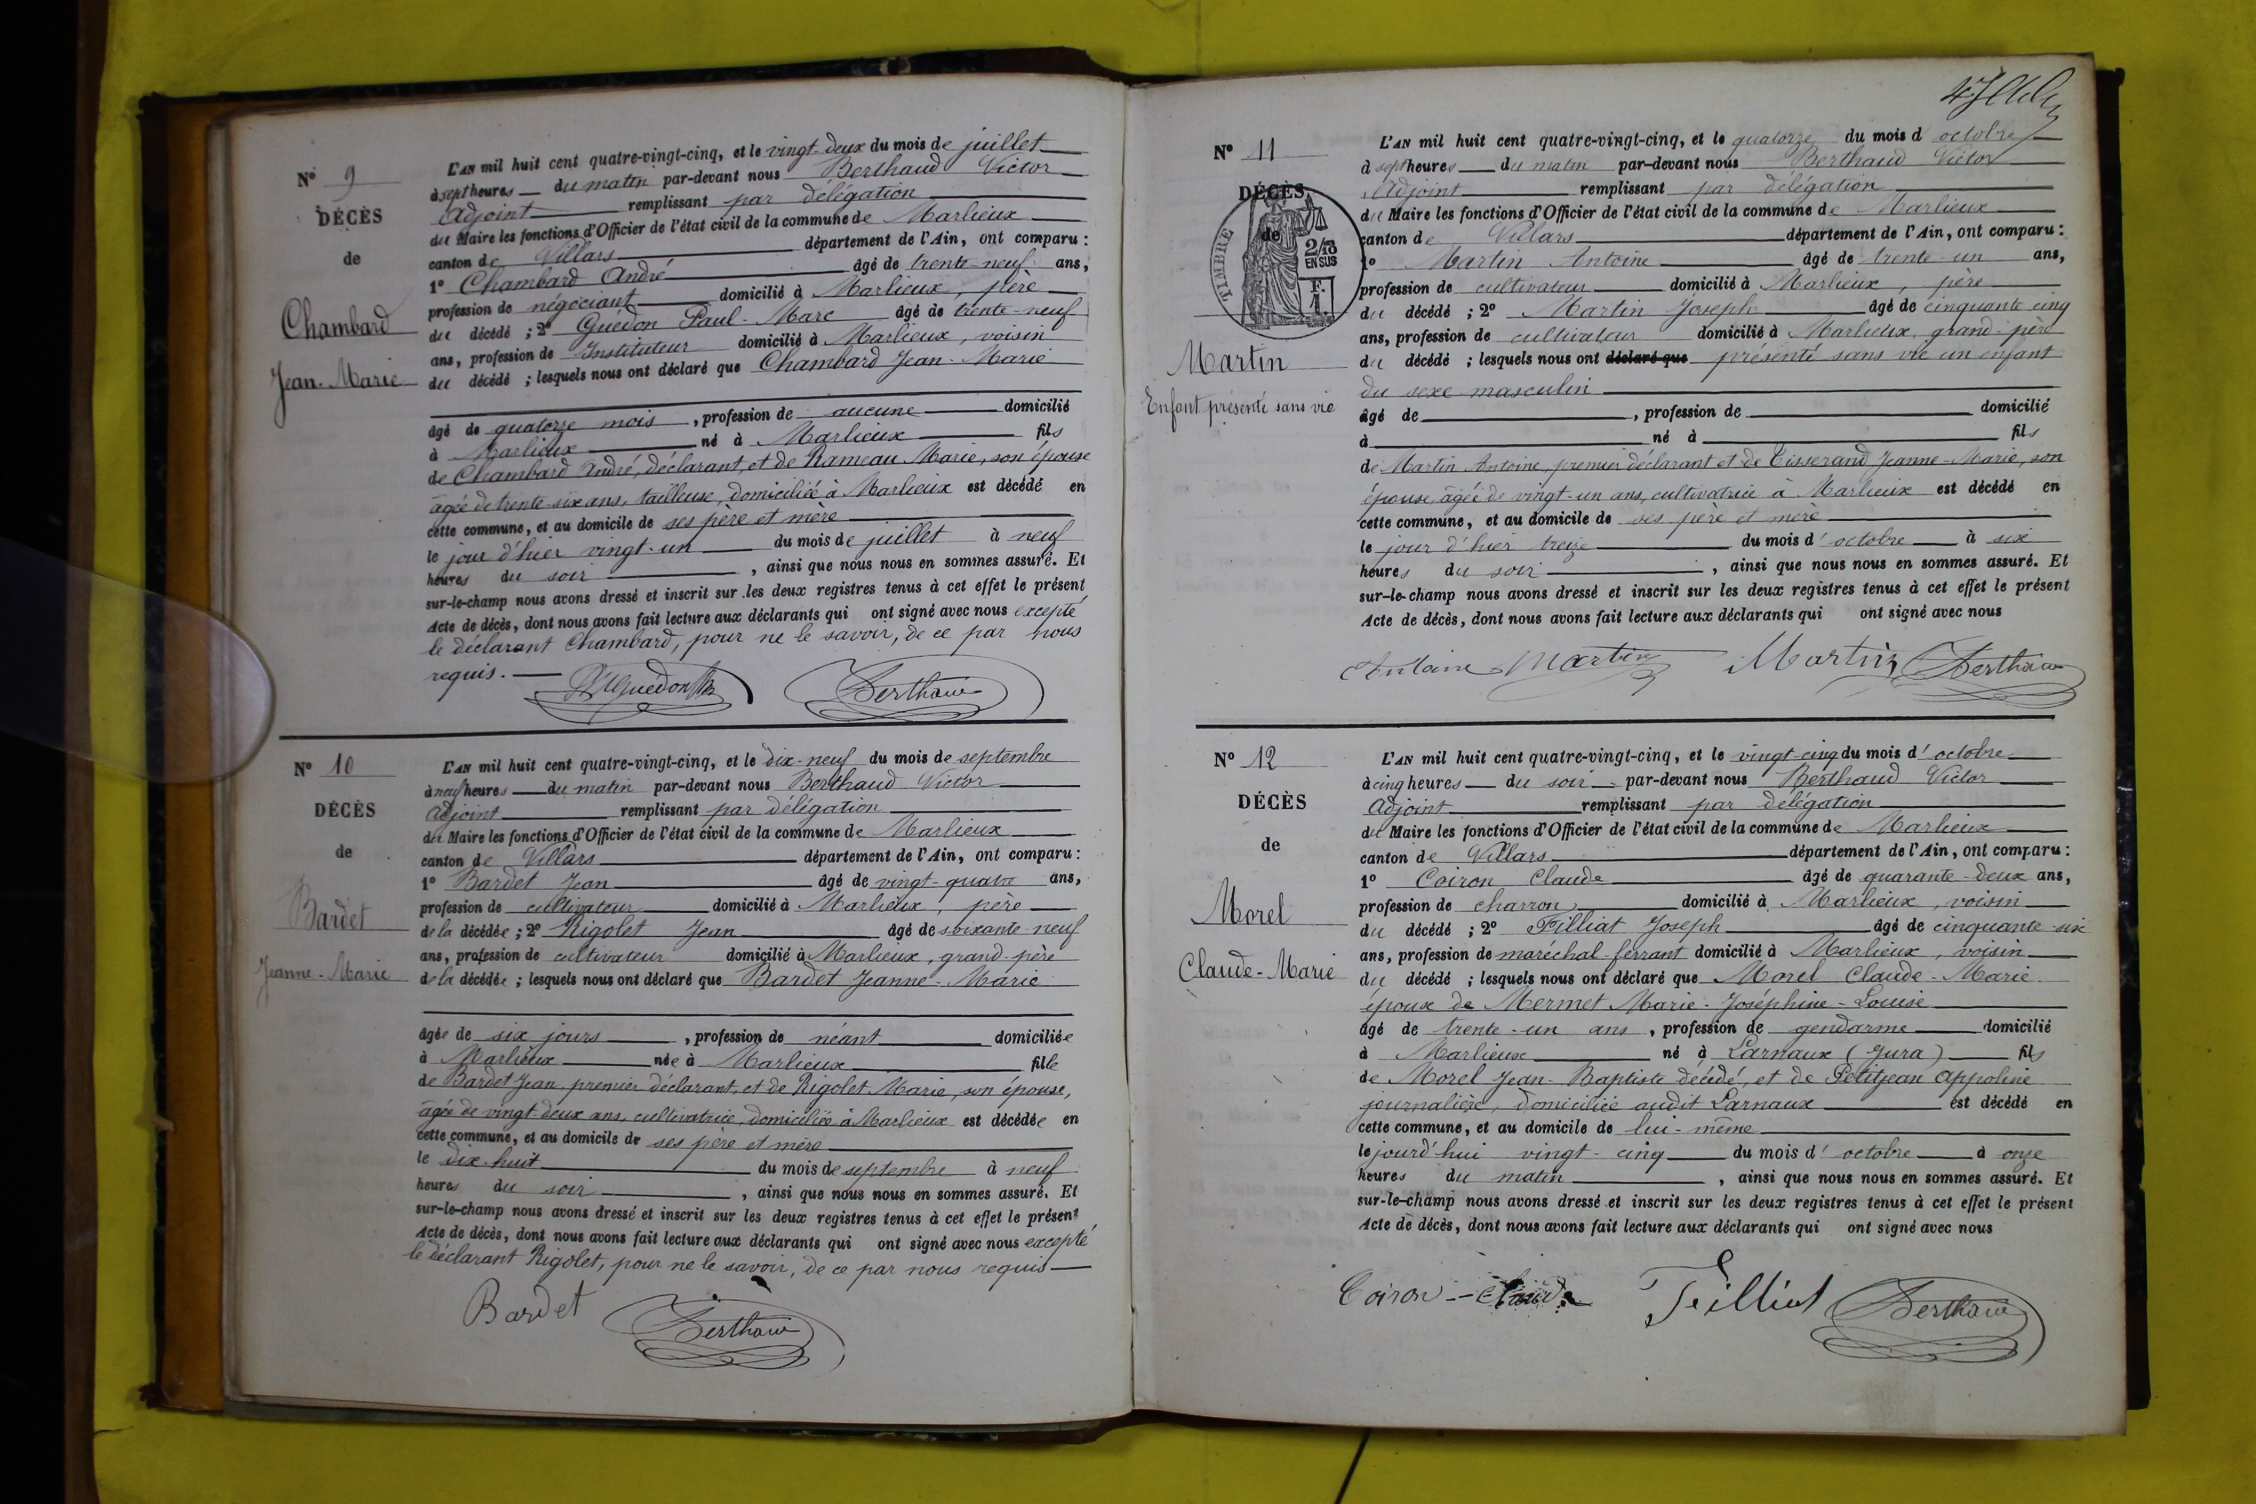 Nº 9
DÉCÈS
de
Chambard
Jean-Marie
L'AN mil huit cent quatre-vingt-cinq, et le vingt-deux du mois de juillet
à sept heures du matin par-devant nous Berthaud Victor
Adjoint remplissant par délégation
du Maire les fonctions d'Officier de l'état civil de la commune de Marlieux
canton de Villars département de l'Ain, ont comparu :
1º Chambard André âgé de trente-neuf ans,
profession de négociant domicilié à Marlieux, père
du décédé ; 2º Guédon Paul-Marc âgé de trente-neuf
ans, profession de Instituteur domicilié à Marlieux, voisin
du décédé ; lesquels nous ont déclaré que Chambard Jean-Marie
âgé de quatorze mois, profession de aucune domicilié
à Marlieux né à Marlieux fils
de Chambard André, déclarant, et de Rameau Marie, son épouse
âgée de trente-six ans, tailleuse, domiciliée à Marlieux est décédé en
cette commune, et au domicile de ses père et mère
le jour d'hier vingt-un du mois de juillet à neuf
heures du soir, ainsi que nous nous en sommes assuré. Et
sur-le-champ nous avons dressé et inscrit sur les deux registres tenus à cet effet le présent
Acte de décès, dont nous avons fait lecture aux déclarants qui ont signé avec nous excepté
le déclarant Chambard, pour ne le savoir, de ce par nous
requis.
Guedon Berthaud
Nº 10
DÉCÈS
de
Bardet
Jeanne-Marie
L'AN mil huit cent quatre-vingt-cinq, et le dix-neuf du mois de septembre
à neuf heures du matin par-devant nous Berthaud Victor
Adjoint remplissant par délégation
du Maire les fonctions d'Officier de l'état civil de la commune de Marlieux
canton de Villars département de l'Ain, ont comparu :
1º Bardet Jean âgé de vingt-quatre ans,
profession de cultivateur domicilié à Marlieux, père
de la décédée ; 2º Rigolet Jean âgé de soixante-neuf
ans, profession de cultivateur domicilié à Marlieux, grand-père
de la décédée ; lesquels nous ont déclaré que Bardet Jeanne-Marie
âgée de six jours, profession de néant domiciliée
à Marlieux née à Marlieux fille
de Bardet Jean, premier déclarant, et de Rigolet Marie, son épouse,
âgée de vingt deux ans, cultivatrice, domiciliée à Marlieux est décédée en
cette commune, et au domicile de ses père et mère
le dix-huit du mois de septembre à neuf
heures du soir, ainsi que nous nous en sommes assuré. Et
sur-le-champ nous avons dressé et inscrit sur les deux registres tenus à cet effet le présent
Acte de décès, dont nous avons fait lecture aux déclarants qui ont signé avec nous excepté
le déclarant Rigolet, pour ne le savoir, de ce par nous requis
Bardet Berthaud
Nº 11
DÉCÈS
de
TIMBRE
2/10
EN SUS
F.
1.
Martin
Enfant présenté sans vie
L'AN mil huit cent quatre-vingt-cinq, et le quatorze du mois d octobre
à sept heures du matin par-devant nous Berthaud Victor
Adjoint remplissant par délégation
du Maire les fonctions d'Officier de l'état civil de la commune de Marlieux
canton de Villars département de l'Ain, ont comparu :
1º Martin Antoine âgé de trente-un ans,
profession de cultivateur domicilié à Marlieux, père
du décédé ; 2º Martin Joseph âgé de cinquante cinq
ans, profession de cultivateur domicilié à Marlieux, grand-père
du décédé ; lesquels nous ont déclaré que présenté sans vie un enfant
du sexe masculin
âgé de , profession de domicilié
à né à fils
de Martin Antoine, premier déclarant et de Tisserand Jeanne-Marie, son
épouse, âgée de vingt-un ans, cultivatrice à Marlieux est décédé en
cette commune, et au domicile de ses père et mère
le jour d'hier treize du mois d'octobre à six
heures du soir, ainsi que nous nous en sommes assuré. Et
sur-le-champ nous avons dressé et inscrit sur les deux registres tenus à cet effet le présent
Acte de décès, dont nous avons fait lecture aux déclarants qui ont signé avec nous
Antoine Martin Martin Berthaud
Nº 12
DÉCÈS
de
Morel
Claude-Marie
L'AN mil huit cent quatre-vingt-cinq, et le vingt-cinq du mois d'octobre
à cinq heures du soir par-devant nous Berthaud Victor
Adjoint remplissant par délégation
du Maire les fonctions d'Officier de l'état civil de la commune de Marlieux
canton de Villars département de l'Ain, ont comparu :
1º Coiron Claude âgé de quarante-deux ans,
profession de charron domicilié à Marlieux, voisin
du décédé ; 2º Filliat Joseph âgé de cinquante-six
ans, profession de maréchal-ferrant domicilié à Marlieux, voisin
du décédé ; lesquels nous ont déclaré que Morel Claude-Marie
époux de Mermet Marie-Joséphine-Louise
âgé de trente-un ans, profession de gendarme domicilié
à Marlieux né à Larnaux (Jura) fils
de Morel Jean-Baptiste décédé, et de Petitjean Appoline
journalière, domiciliée audit Larnaux est décédé en
cette commune, et au domicile de lui-même
le jourd'hui vingt-cinq du mois d'octobre à onze
heures du matin, ainsi que nous nous en sommes assuré. Et
sur-le-champ nous avons dressé et inscrit sur les deux registres tenus à cet effet le présent
Acte de décès, dont nous avons fait lecture aux déclarants qui ont signé avec nous
Coiron Claude Filliat Berthaud